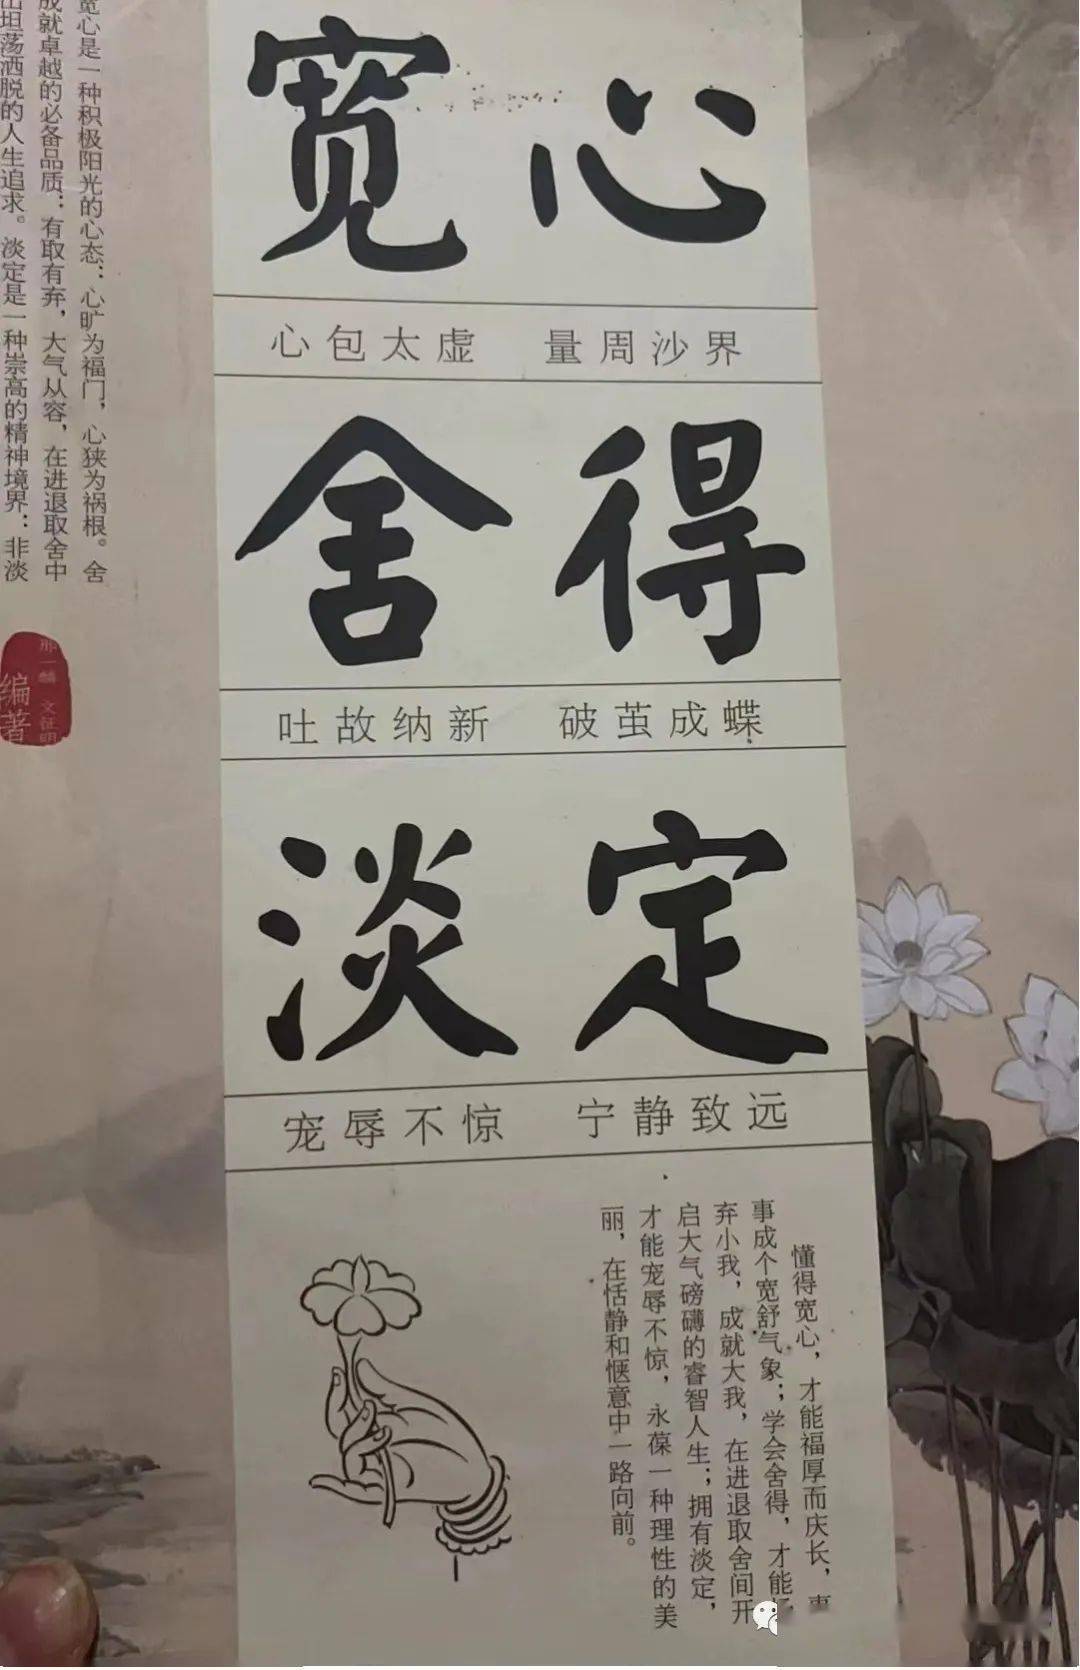 宽心
心包太虚 量周沙界
舍得
吐故纳新 破茧成蝶
淡定
宠辱不惊 宁静致远
懂得宽心，才能福厚而庆长，事
事成个宽舒气象；学会舍得，才能
弃小我，成就大我，在进退取舍间开
启大气磅礴的睿智人生；拥有淡定，
才能宠辱不惊，永葆一种理性的美
丽，在恬静和惬意中一路向前。
宽心是一种积极阳光的心态：心旷为福门，心狭为祸根。舍
成就卓越的必备品质：有取有弃，大气从容，在进退取舍中
出坦荡洒脱的人生追求。淡定是一种崇高的精神境界：非淡
编著